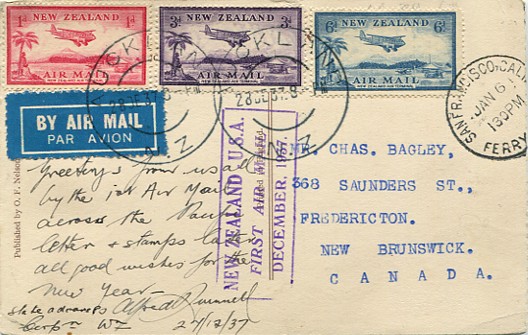 1d NEW ZEALAND 1d
AIR MAIL
3d NEW ZEALAND 3d
AIR MAIL
6d NEW ZEALAND 6d
AIR MAIL
AUCKLAND
28 DE 37
N.Z
AUCKLAND
28 DE 37
N.Z
SAN FRANCISCO, CAL.
JAN 6
130PM
FERRY
BY AIR MAIL
PAR AVION
Published by O. F. Nelson
NEW ZEALAND U.S.A.
FIRST AIR
DECEMBER, 1937
MR. CHAS. BAGLEY,
368 SAUNDERS ST.,
FREDERICTON.
NEW BRUNSWICK.
CANADA.
Greetings from us all
by the 1st Air Mail
across the Pacific
letter & stamps later
all good wishes for the
New Year
Alfred
NZ 27/12/37